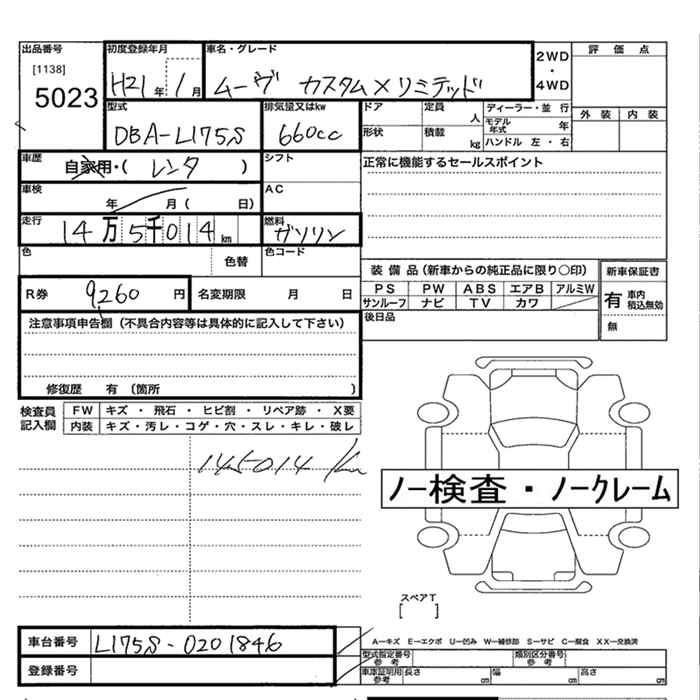 出品番号
[1138]
5023
初度登録年月
H21年 1月
車名・グレード
ムーヴ カスタムXリミテッド
2WD
・
4WD
評価点
外装 内装
型式
DBA-L175S
排気量又はkw
660cc
ドア
定員 人
形状
積載 kg
ディーラー・並行
モデル年式 年
ハンドル 左・右
車歴
自家用・( レンタ )
シフト
正常に機能するセールスポイント
車検
年 月( 日)
AC
走行
14万5千014km
燃料
ガソリン
色
色替
色コード
装備品(新車からの純正品に限り○印)
新車保証書
PS PW ABS エアB アルミW
サンルーフ ナビ TV カワ
有 車内積込無効
無
R券 9,260円
名変期限 月 日
後日品
注意事項申告欄(不具合内容等は具体的に記入して下さい)
修復歴 有 (箇所 )
検査員記入欄
FW キズ・飛石・ヒビ割・リペア跡・X要
内装 キズ・汚レ・コゲ・穴・スレ・キレ・破レ
145014km
ノー検査・ノークレーム
スペアT
[ ]
車台番号 L175S-0201846
登録番号
A−キズ E−エクボ U−凹み W−補修跡 S−サビ C−腐食 XX−交換済
型式指定番号 参考
類別区分番号 参考
車庫証明用 参考
長さ cm 幅 cm 高さ cm